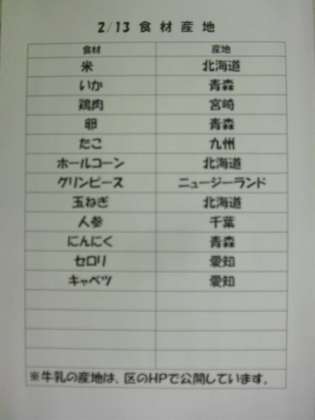 2/13 食材産地
食材 産地
米 北海道
いか 青森
鶏肉 宮崎
卵 青森
たこ 九州
ホールコーン 北海道
グリンピース ニュージーランド
玉ねぎ 北海道
人参 千葉
にんにく 青森
セロリ 愛知
キャベツ 愛知
※牛乳の産地は、区のHPで公開しています。